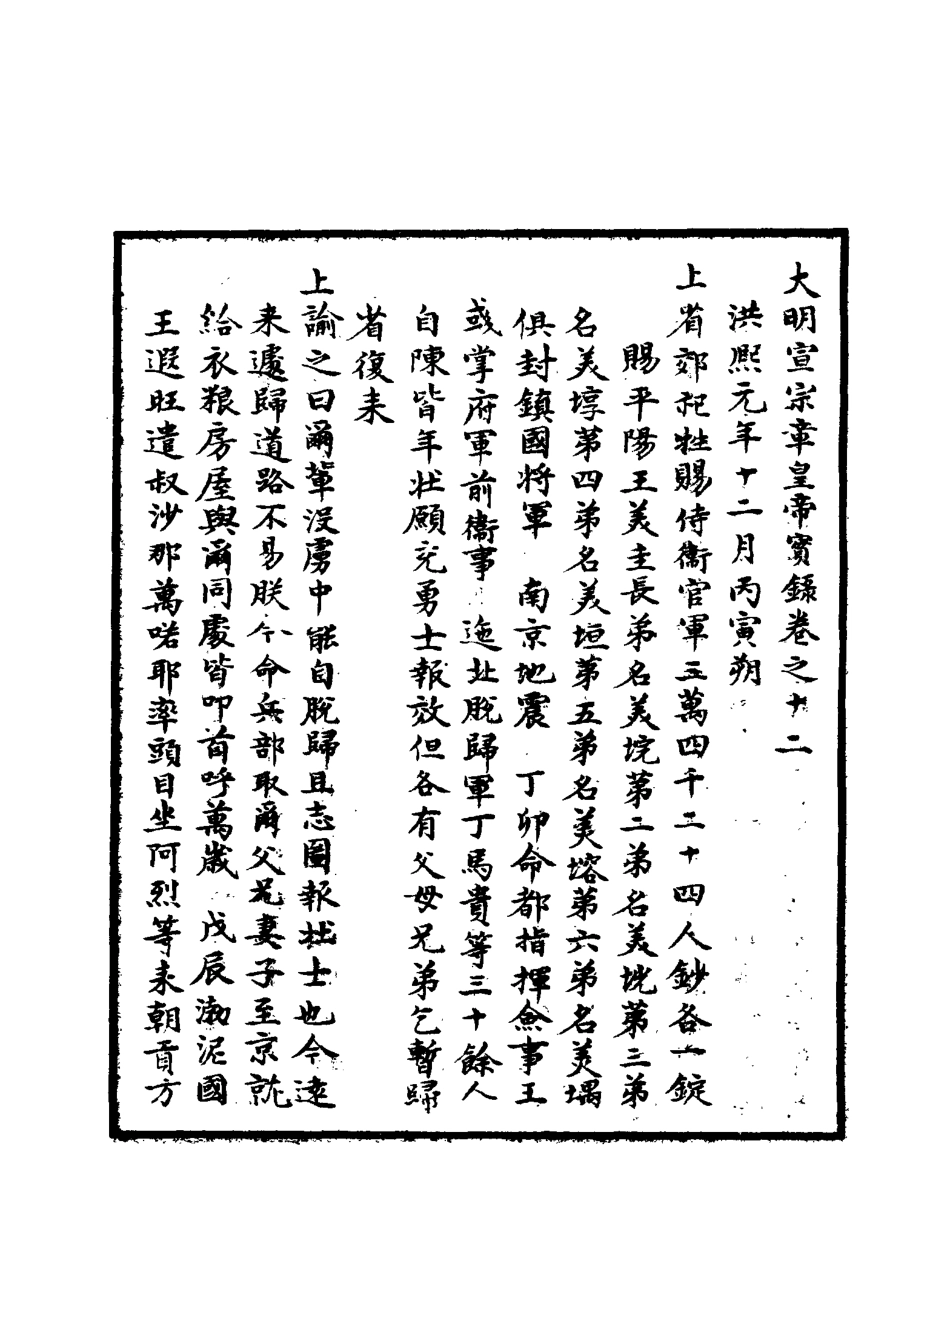 大明宣宗章皇帝寶錄卷之十二
洪熙元年十二月丙寅朔
上省郊祀牲賜侍衛官軍三萬四千二十四人鈔各一錠
賜平陽王美圭長弟名美垸第二弟名美垙第三弟
名美埻第四弟名美垣第五弟名美塎第六弟名美堣
俱封鎮國將軍 南京地震 丁卯命都指揮僉事王
彧掌府軍前衛事 迤北脫歸軍丁馬貴等三十餘人
自陳皆年壯願充勇士報效但各有父母兄弟乞暫歸
省復来
上諭之曰爾輩没虜中能自脫歸且志圖報壯士也今遠
来遽歸道路不易朕今命兵部取爾父兄妻子至京就
給衣粮房屋與爾同處皆叩首呼萬歲 戊辰渤泥國
王遐旺遣叔沙那萬喏耶率頭目坐阿烈等来朝貢方